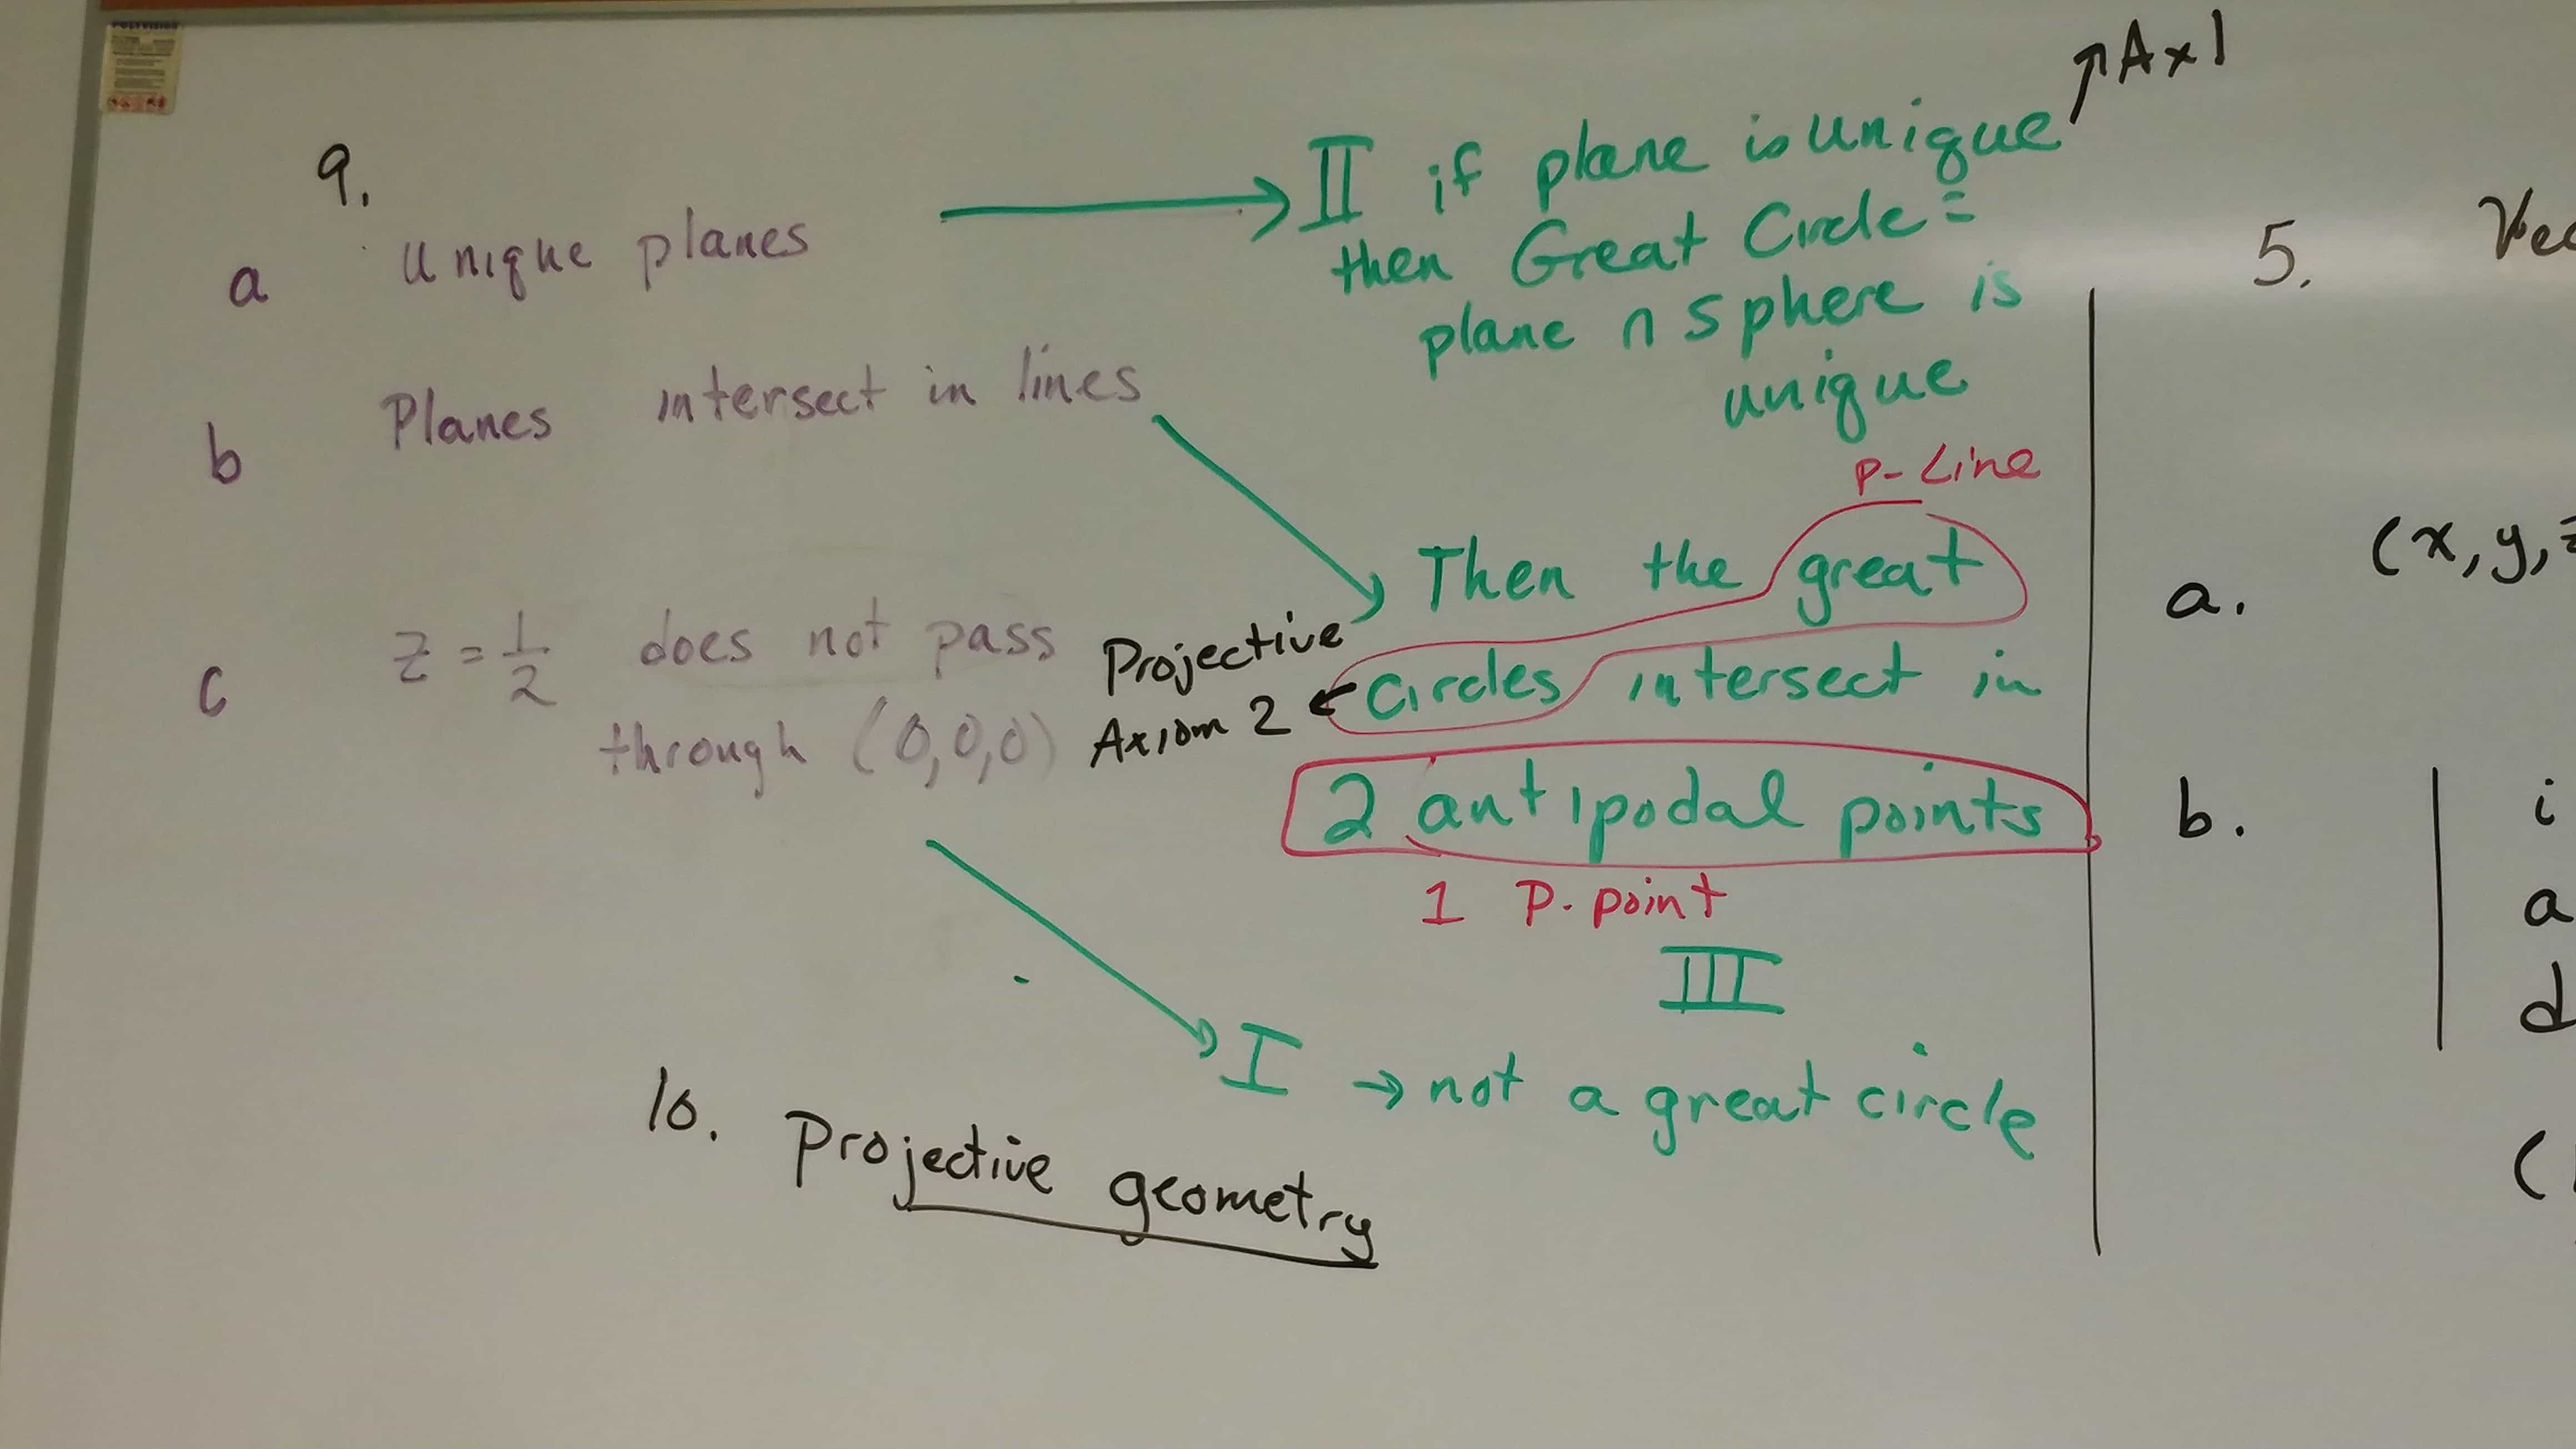 POLYVISION
↑Ax1
9.
a unique planes → II if plane is unique
then Great Circle =
plane ∩ sphere is
unique
b Planes intersect in lines
p-Line
Then the great
circles intersect in
Projective
Axiom 2 ←
2 antipodal points
1 P. point
III
c z = 1/2 does not pass
through (0,0,0)
I → not a great circle
10. Projective geometry
5.
a. (x, y,
b. i
a
d
(